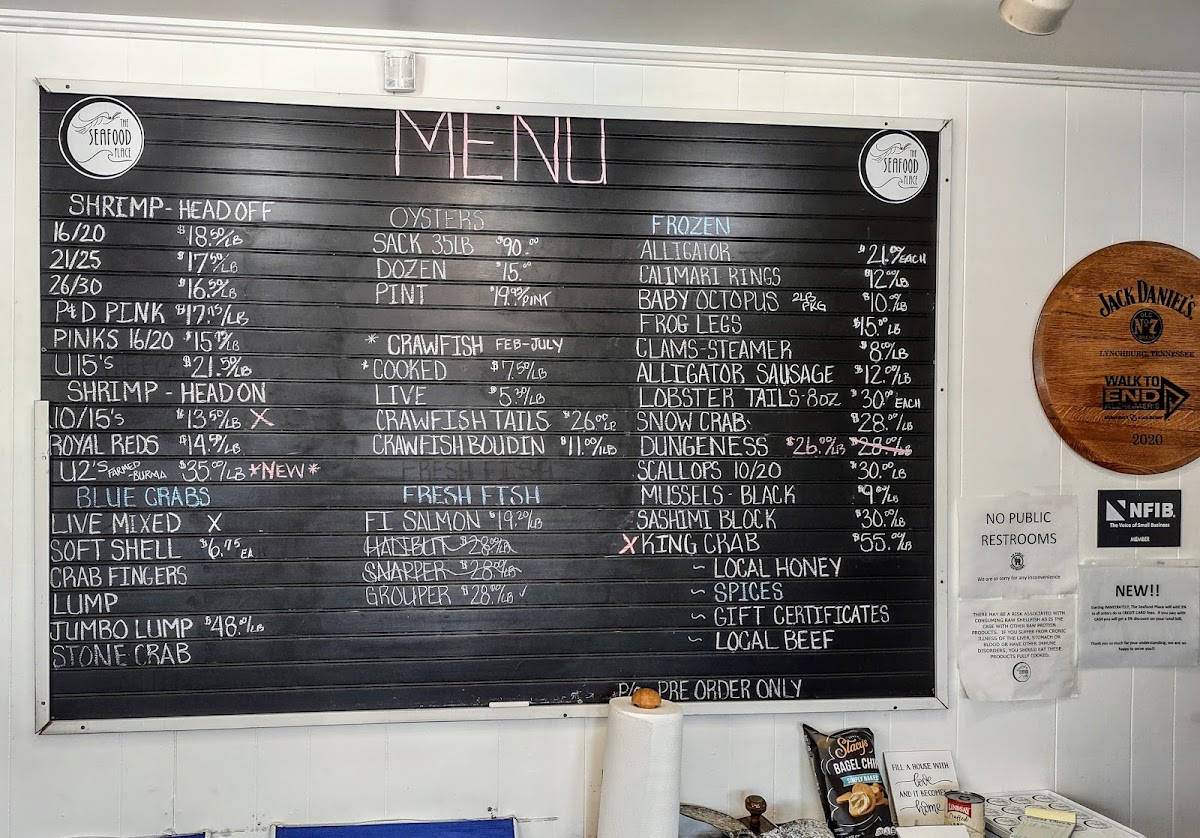 THE
SEAFOOD
PLACE
MENU
THE
SEAFOOD
PLACE
SHRIMP - HEAD OFF
16/20 $18.50/LB
21/25 $17.50/LB
26/30 $16.50/LB
P&D PINK $17.75/LB
PINKS 16/20 $15
U15's $21.50/LB
SHRIMP - HEAD ON
10/15's $13.50/LB X
ROYAL REDS $14.50/LB
U2's FARMED-BURMA $35.00/LB *NEW*
BLUE CRABS
LIVE MIXED X
SOFT SHELL $6.75 EA
CRAB FINGERS
LUMP
JUMBO LUMP $48.00/LB
STONE CRAB
OYSTERS
SACK 35LB $90.00
DOZEN $15.00
PINT $19.95/PINT
* CRAWFISH FEB-JULY
*COOKED $7.50/LB
LIVE $5.50/LB
CRAWFISH TAILS $26.00/LB
CRAWFISH BOUDIN $11.00/LB
FRESH FISH
FRESH FISH
FI SALMON $19.20/LB
HALIBUT $28.00/LB
SNAPPER $28.00/LB
GROUPER $28.00/LB ✓
FROZEN
ALLIGATOR $21.00/EACH
CALIMARI RINGS $12.00/LB
BABY OCTOPUS 2LB PKG $10.00/LB
FROG LEGS $15.00 LB
CLAMS-STEAMER $8.00/LB
ALLIGATOR SAUSAGE $12.00/LB
LOBSTER TAILS-8OZ $30.00 EACH
SNOW CRAB $28.00/LB
DUNGENESS $26.00/LB $28.00/LB
SCALLOPS 10/20 $30.00 LB
MUSSELS - BLACK $9.00/LB
SASHIMI BLOCK $30.00/LB
X KING CRAB $55.00/LB
~ LOCAL HONEY
~ SPICES
~ GIFT CERTIFICATES
~ LOCAL BEEF
PRE ORDER ONLY
JACK DANIEL'S
OLD
No 7
LYNCHBURG, TENNESSEE
WALK TO
END
ALZHEIMER'S
2020
NFIB
The Voice of Small Business
MEMBER
NO PUBLIC
RESTROOMS
We are so sorry for any inconvenience
THERE MAY BE A RISK ASSOCIATED WITH
CONSUMING RAW SHELLFISH AS IS THE
CASE WITH OTHER RAW PROTEIN
PRODUCTS. IF YOU SUFFER FROM CRONIC
ILLNESS OF THE LIVER, STOMACH OR
BLOOD OR HAVE OTHER IMMUNE
DISORDERS, YOU SHOULD EAT THESE
PRODUCTS FULLY COOKED.
NEW!!
Starting IMMEDIATELY, The Seafood Place will add 3%
to all orders to CREDIT CARD fees. If you pay with
CASH you will get a 3% discount on your total bill.
Thank you so much for your understanding, we are so
happy to serve you!!
Stacy's
BAGEL CHI
SIMPLY NAKED
FILL A HOUSE WITH
love
AND IT BECOMES
home